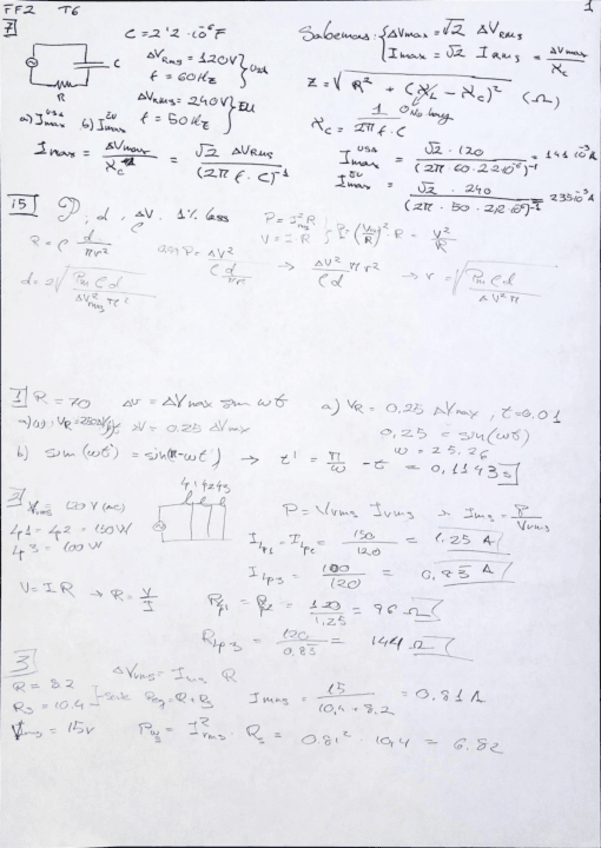 FF2 T6
1
7
C = 2'2 · 10⁻⁶ F
ΔVRMS = 120V
f = 60Hz } USA
ΔVRMS = 240V } EU
f = 50Hz
C
R
a) Imax USA b) Imax EU
Sabemos: { ΔVmax = √2 ΔVRMS
Imax = √2 IRMS = ΔVmax / Xc
Z = √(R² + (XL - Xc)²) (Ω)
0 No hay
Xc = 1 / 2π f · C
Imax = ΔVmax / Xc = √2 ΔVRMS / (2π f · C)⁻¹
Imax USA = √2 · 120 / (2π · 60 · 2'2·10⁻⁶)⁻¹ = 141·10⁻³ A
Imax EU = √2 · 240 / (2π · 50 · 2,2·10⁻⁶)⁻¹ = 235·10⁻³ A
15 P, d, ΔV, 1% loss
ρ
P = I²rms R
V = I · R } P = (Vrms/R)² · R = V²/R
R = ρ d / πr²
P = ΔV² / (ρ d / πr²) → ΔV² π r² / ρd → r = √(ρ d / ΔV² π)
d = 2√(ρ d / ΔV²rms π)
1 R = 70 Δv = ΔVmax sin ωt a) VR = 0,25 ΔVmax, t = 0,01
ΔV = 0.25 ΔVmax
0,25 = sin(ωt)
ω = 25,26
b) sin(ωt) = sin(π-ωt) → t' = π/ω - t = 0,1143 s
2 Vrms = 120 V (AC)
41 42 43
41 = 42 = 150W
43 = 100 W
P = Vrms Irms → Irms = P / Vrms
Ilp1 = Ilp2 = 150 / 120 = 1.25 A
Ilp3 = 100 / 120 = 0,83 A
V = I R → R = V / I
Rlp1 = Rlp2 = 120 / 1,25 = 96 Ω
Rlp3 = 120 / 0,83 = 144 Ω
3
ΔVrms = Irms R
R = 8.2
Rs = 10.4 } Serie Req = R + Rs
Irms = 15 / (10,4 + 8,2) = 0.81 A
Vrms = 15V
P = I²rms · Rs = 0.81² · 10,4 = 6.82